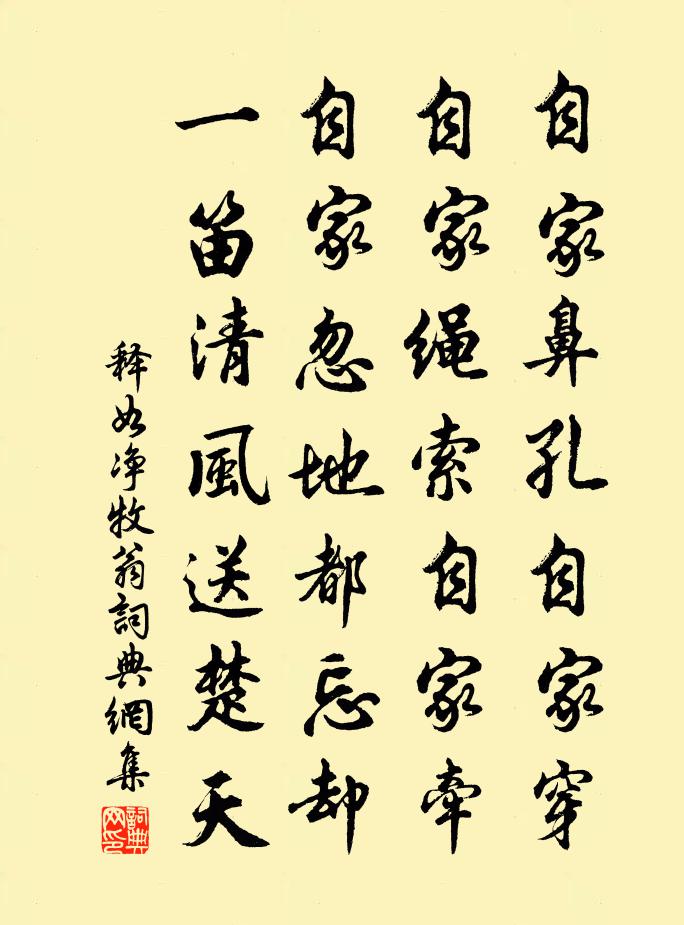 自家鼻孔自家穿
自家绳索自家牵
自家忽地都忘却
一笛清風送楚天
释如净牧翁詞典網集
詞典网印